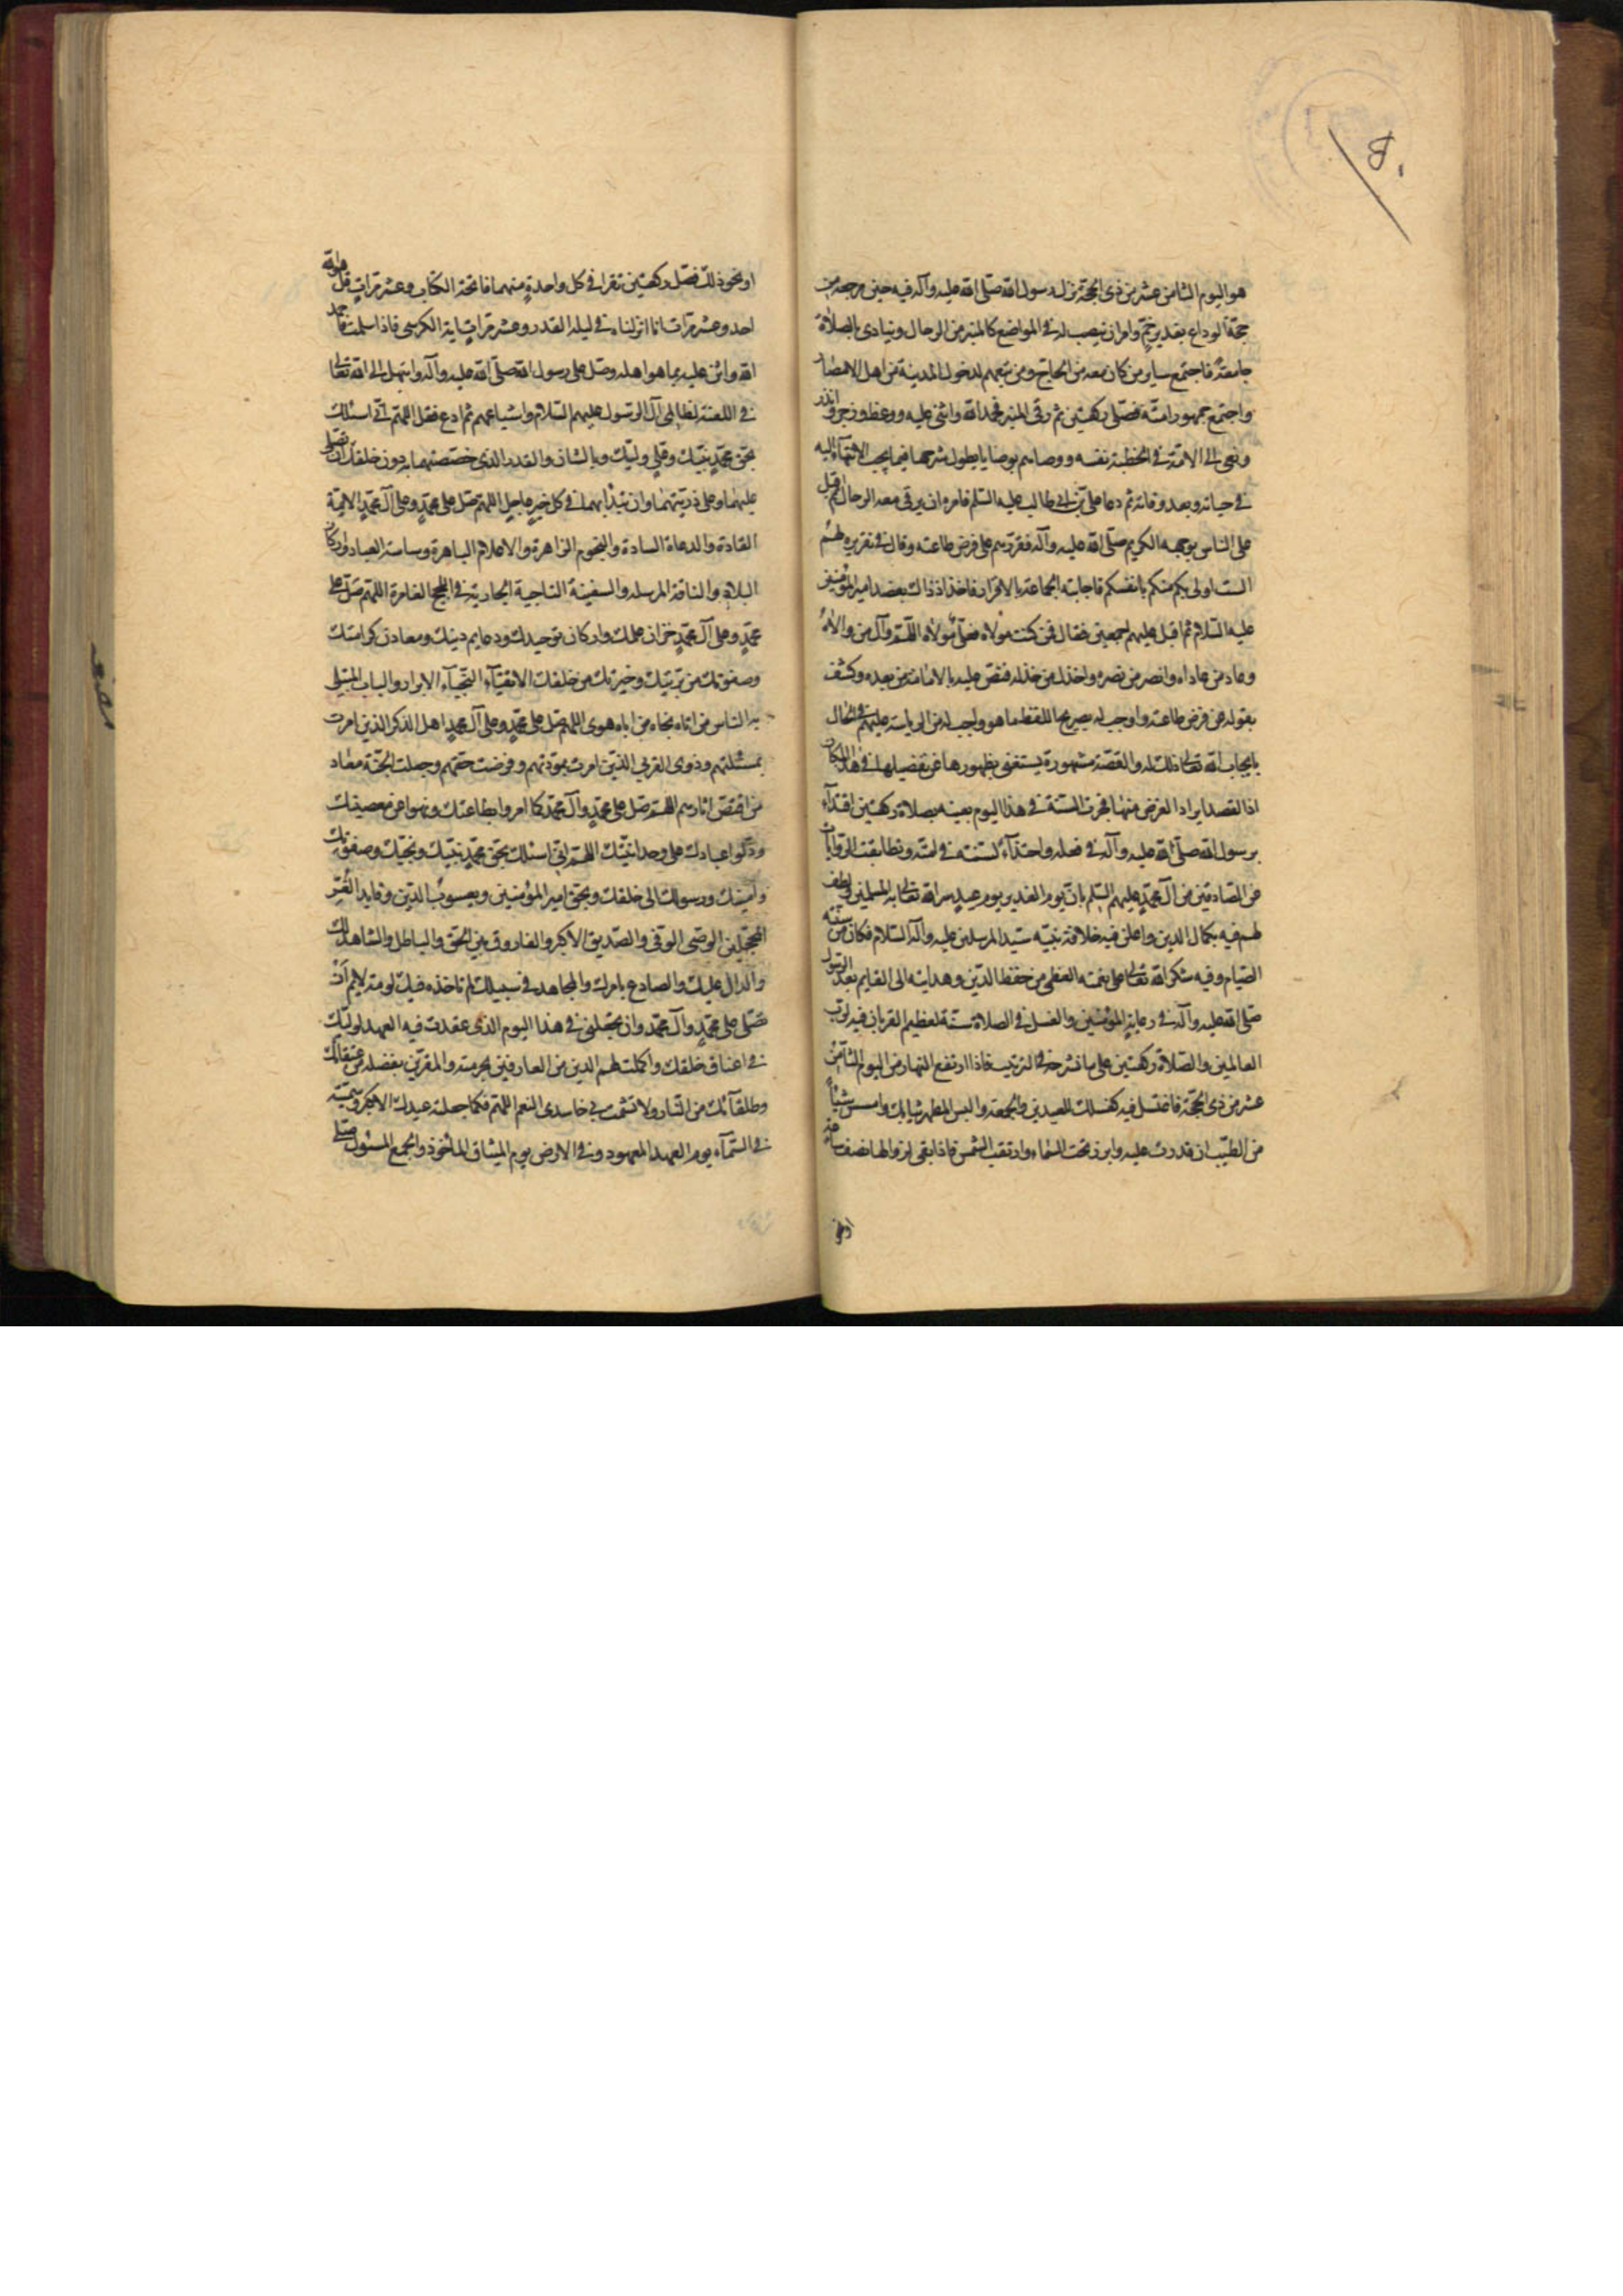 هو اليوم الثامن عشر من ذى الحجة نزل رسول الله صلى الله عليه وآله فيه حين مرجعه من
حجة الوداع بغدير خم وامر ان ينصب له في المواضع كالمنبر من الرحال وينادى بالصلاة
جامعة فاجتمع ساير من كان معه من الحاج ومن تبعهم لدخول المدينة من اهل الامصار
واجتمع جمهور امته فصلى ركعتين ثم رقى المنبر فحمد الله واثنى عليه ووعظ وزجر وانذر
ونعى الى الامة في الخطبة نفسه ووصاهم بوصايا يطول شرحها فيما يجب الانتهاء اليه
في حياته وبعد وفاته ثم دعا على بن ابى طالب عليه السلم فامره ان يرقى معه الرحال ثم اقبل
على الناس بوجهه الكريم صلى الله عليه وآله فقررهم على فرض طاعته وقال في تقريره لهم
الست اولى بكم منكم بانفسكم فاجابته الجماعة بالاقرار فاخذ اذ ذاك بعضد امير المؤمنين
عليه السلام ثم اقبل عليهم اجمعين فقال فمن كنت مولاه فعلى مولاه اللهم وآل من والاه
وعاد من عاداه وانصر من نصره واخذل من خذله فنص عليه بالامامة من بعده وكشف
بقوله عن فرض طاعته واوجب له بصريح اللفظ ما هو واجب له من الرياسة عليهم في الحال
بايجاب الله تعالى ذلك له والقصة مشهورة يستغنى بظهورها عن تفصيلها في هذا المكان
اذ القصد ايراد الغرض منها فجرت السنة في هذا اليوم بعينه بصلاة ركعتين اقتداء
برسول الله صلى الله عليه وآله في فعله واحتذاء لسنته في امته وتطابقت الروايات
عن الصادقين من آل محمد عليهم السلم بان يوم الغدير يوم عيد سر الله تعالى به المسلمين ولطف
لهم فيه بكمال الدين واعلن فيه خلافة نبيه سيد المرسلين عليه وآله السلام فكان من سننه
الصيام وفيه شكر الله تعالى على نعمته العظمى من حفظ الدين وهدايته الى القايم بعد الرسول
صلى الله عليه وآله في رعاية المؤمنين والغسل في الصلاة سنة لعظيم القربان فيه لرب
العالمين والصلاة ركعتين على ما نشرحه في الترتيب فاذا ارتفع النهار من اليوم الثامن
عشر من ذى الحجة فاغتسل فيه كغسلك للعيدين والجمعة والبس اطهر ثيابك وامسس شيئا
من الطيب ان قدرت عليه وابرز تحت السماء وارتقب الشمس فاذا بقى لزوالها نصف ساعة
او نحو
او نحو ذلك فصل ركعتين تقرا في كل واحدة منهما فاتحة الكتاب وعشر مرات قل هو الله
احد وعشر مرات انا انزلناه في ليلة القدر وعشر مرات اية الكرسى فاذا سلمت فاحمد
الله واثن عليه بما هو اهله وصل على رسول الله صلى الله عليه وآله وابتهل الى الله تعالى
في اللعنة لظالمى آل الرسول عليهم السلام واشياعهم ثم ادع فقل اللهم انى اسئلك
بحق محمد نبيك وعلى وليك وبالشان والقدر الذى خصصتهما به دون خلقك ان تصلى
عليهما وعلى ذريتهما وان تبدأ بهما في كل خير عاجل اللهم صل على محمد وعلى آل محمد الائمة
القادة والدعاة السادة والنجوم الزاهرة والاعلام الباهرة وساسة العباد واركان
البلاد والناقة المرسلة والسفينة الناجية الجارية في اللجج الغامرة اللهم صل على
محمد وعلى آل محمد خزان علمك واركان توحيدك ودعايم دينك ومعادن كرامتك
وصفوتك من بريتك وخيرتك من خلقك الاتقياء النجباء الابرار والباب المبتلى
به الناس من اتاه نجاه من اباه هوى اللهم صل على محمد وعلى آل محمد اهل الذكر الذين امرت
بمسئلتهم وذوى القربى الذين امرت بمودتهم وفرضت حقهم وجعلت الجنة معاد
من اقتص اثارهم اللهم صل على محمد وآل محمد كما امروا بطاعتك ونهوا عن معصيتك
ودلوا عبادك على وحدانيتك اللهم انى اسئلك بحق محمد نبيك ونجيك وصفوتك
وامينك ورسولك الى خلقك وبحق امير المؤمنين ويعسوب الدين وقايد الغر
المحجلين الوصى الوفى والصديق الاكبر والفاروق بين الحق والباطل والشاهد لك
والدال عليك والصادع بامرك والمجاهد في سبيلك لم تاخذه فيك لومة لايم ان
تصلى على محمد وآل محمد وان تجعلنى في هذا اليوم الذى عقدت فيه العهد لوليك
في اعناق خلقك واكملت لهم الدين من العارفين بحرمته والمقرين بفضله من عتقائك
وطلقائك من النار ولا تشمت بى حاسدى النعم اللهم فكما جعلته عيدك الاكبر وسميته
في السماء يوم العهد المعهود وفي الارض يوم الميثاق الماخوذ والجمع المسئول صل على